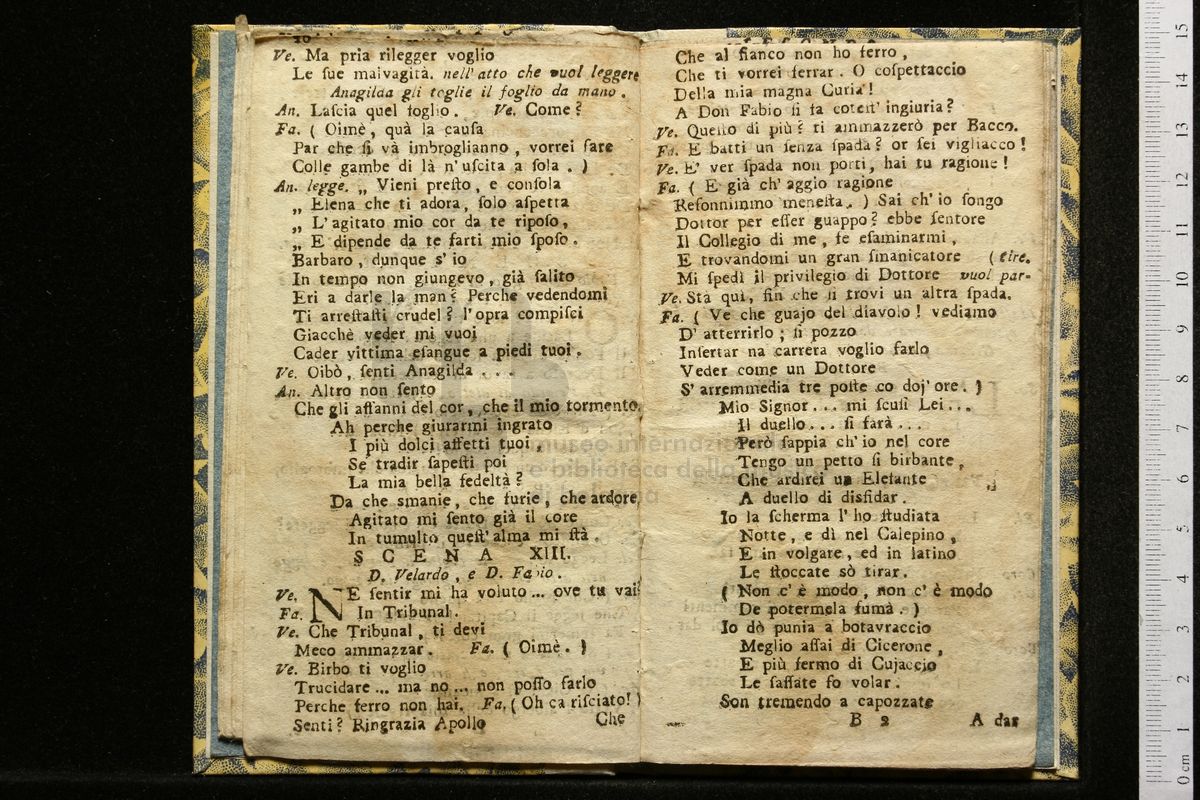 Ve. Ma pria rilegger voglio
Le sue malvagità. nell' atto che vuol leggere
Anagilda gli toglie il foglio da mano.
An. Lascia quel foglio. Ve. Come?
Fa. ( Oimè, quà la causa
Par che si và imbroglianno, vorrei fare
Colle gambe di là n'uscita a sola. )
An. legge. „ Vieni presto, e consola
„ Elena che ti adora, solo aspetta
„ L'agitato mio cor da te riposo,
„ E dipende da te farti mio sposo.
Barbaro, dunque s'io
In tempo non giungevo, già salito
Eri a darle la man? Perche vedendomi
Ti arrestasti crudel? l'opra compisci
Giacchè veder mi vuoi
Cader vittima esangue a piedi tuoi.
Ve. Oibò, senti Anagilda . . .
An. Altro non sento
Che gli affanni del cor, che il mio tormento.
Ah perche giurarmi ingrato
I più dolci affetti tuoi,
Se tradir sapesti poi
La mia bella fedeltà?
Da che smanie, che furie, che ardore,
Agitato mi sento già il core
In tumulto quest'alma mi stà.
SCENA XIII.
D. Velardo, e D. Fabio.
Ve. NE sentir mi ha voluto ... ove tu vai?
Fa. In Tribunal.
Ve. Che Tribunal, ti devi
Meco ammazzar. Fa. ( Oimè. )
Ve. Birbo ti voglio
Trucidare ... ma no ... non posso farlo
Perche ferro non hai. Fa. ( Oh ca risciato! )
Senti? Ringrazia Apollo
Che
Che al fianco non ho ferro,
Che ti vorrei ferrar. O cospettaccio
Della mia magna Curia!
A Don Fabio si fa cotest' ingiuria?
Ve. Questo di più? ti ammazzerò per Bacco.
Fa. E batti un senza spada? or sei vigliacco!
Ve. E' ver spada non porti, hai tu ragione!
Fa. ( E già ch' aggio ragione
Resonnimmo menesta. ) Sai ch' io songo
Dottor per esser guappo? ebbe sentore
Il Collegio di me, fe esaminarmi,
E trovandomi un gran smanicatore (tire.
Mi spedì il privilegio di Dottore vuol par-
Ve. Sta qui, fin che si trovi un altra spada.
Fa. ( Ve che guajo del diavolo! vediamo
D' atterrirlo; si pozzo
Insertar na carrera voglio farlo
Veder come un Dottore
S' arremmedia tre poste co doj' ore. )
Mio Signor ... mi scusi Lei ...
Il duello ... si farà ...
Però sappia ch' io nel core
Tengo un petto sì birbante,
Che ardirei un Elefante
A duello di disfidar.
Io la scherma l' ho studiata
Notte, e dì nel Calepino,
E in volgare, ed in latino
Le stoccate sò tirar.
( Non c' è modo, non c' è modo
De potermela fumà. )
Io dò punia a botavraccio
Meglio assai di Cicerone,
E più fermo di Cujaccio
Le sassate fo volar.
Son tremendo a capozzate
B 2 A dar
museo internazionale
e biblioteca della musica
di bologna
0 cm 1 2 3 4 5 6 7 8 9 10 11 12 13 14 15